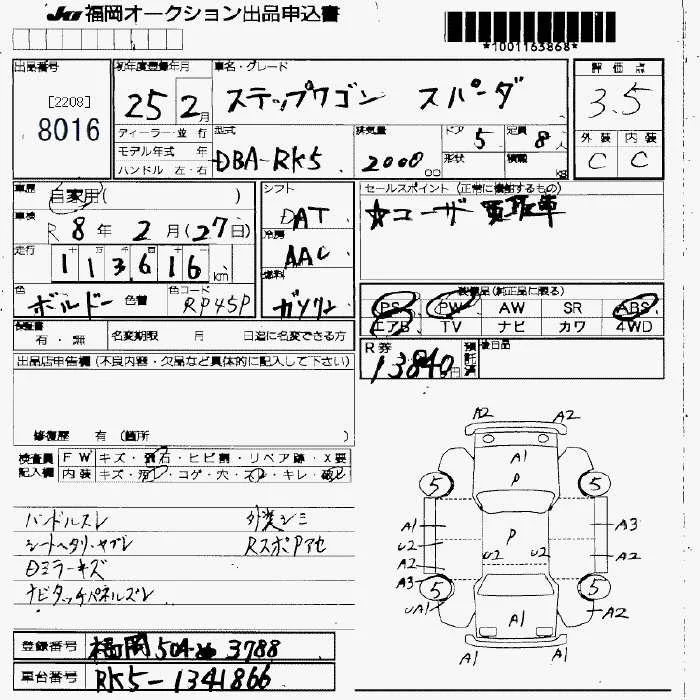 JU 福岡オークション出品申込書
*1001163868*
出品番号
[2208]
8016
初年度登録年月
25年 2月
車名・グレード
ステップワゴン スパーダ
評価点
3.5
外装 内装
C C
ディーラー・並行
モデル年式 年
ハンドル 左・右
型式
DBA-RK5
排気量
2000 cc
ドア 5
形状
定員 8人
積載 kg
車歴
自家用( )
車検
R 8年 2月(27日)
走行
113616km
色
ボルドー
色替
色コード
RP45P
シフト
DAT
冷房
AAC
燃料
ガソリン
セールスポイント (正常に機能するもの)
☆ユーザー買取車
装備品(純正品に限る)
PS PW AW SR ABS
エアB TV ナビ カワ 4WD
R券
13840円
預託済
後日品
有・無
名変期限 月 日迄に名変できる方
出品店申告欄(不良内容・欠品など具体的に記入して下さい)
修復歴 有(箇所 )
検査員記入欄
FW キズ・飛石・ヒビ割・リペア跡・X要
内装 キズ・汚レ・コゲ・穴・スレ・キレ・破レ
ハンドルスレ 外装シミ
シートヘタリ・ヤブレ
Dミラーキズ
ナビタッチパネルズレ
A2 A2
A1
P
5 5
A1 A3
U2 P A2
A2 U2 U2
A3
5 5
UA1 A2
A1
A2 A2
登録番号
3788
車台番号
RK5-1341866